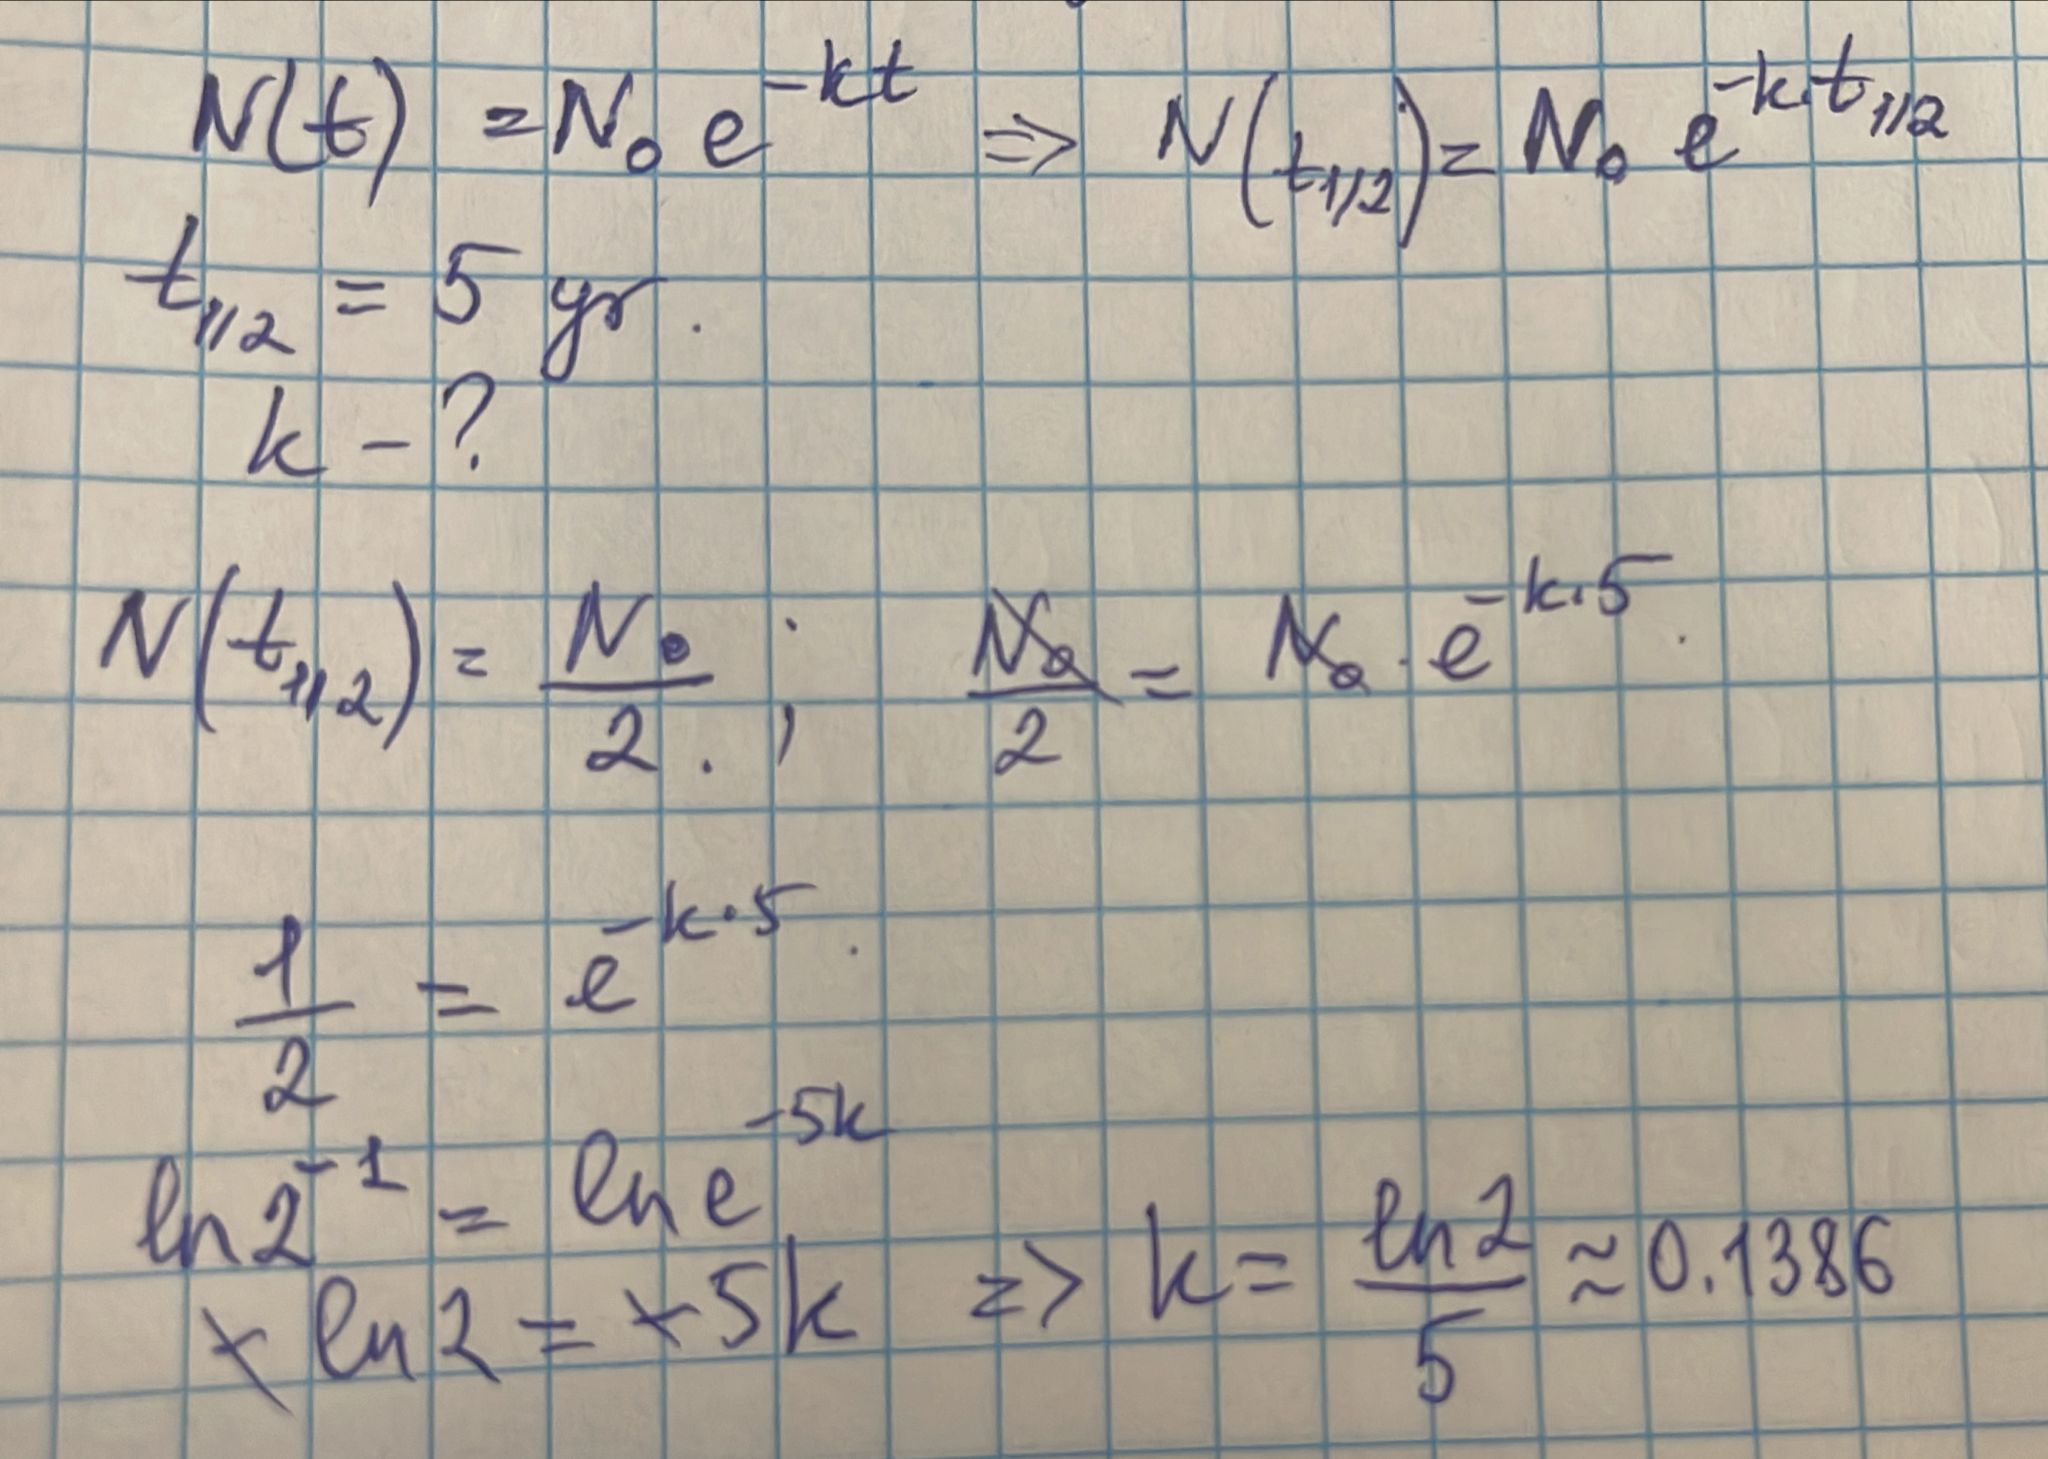 N(t) = N₀ e^{-kt} => N(t_{1/2}) = N₀ e^{-k·t_{1/2}}
t_{1/2} = 5 yr.
k - ?
N(t_{1/2}) = N₀/2 . ; N₀/2 = N₀ · e^{-k·5}.
1/2 = e^{-k·5}.
ln 2^{-1} = ln e^{-5k}
- ln 2 = -5k => k = ln2/5 ≈ 0.1386